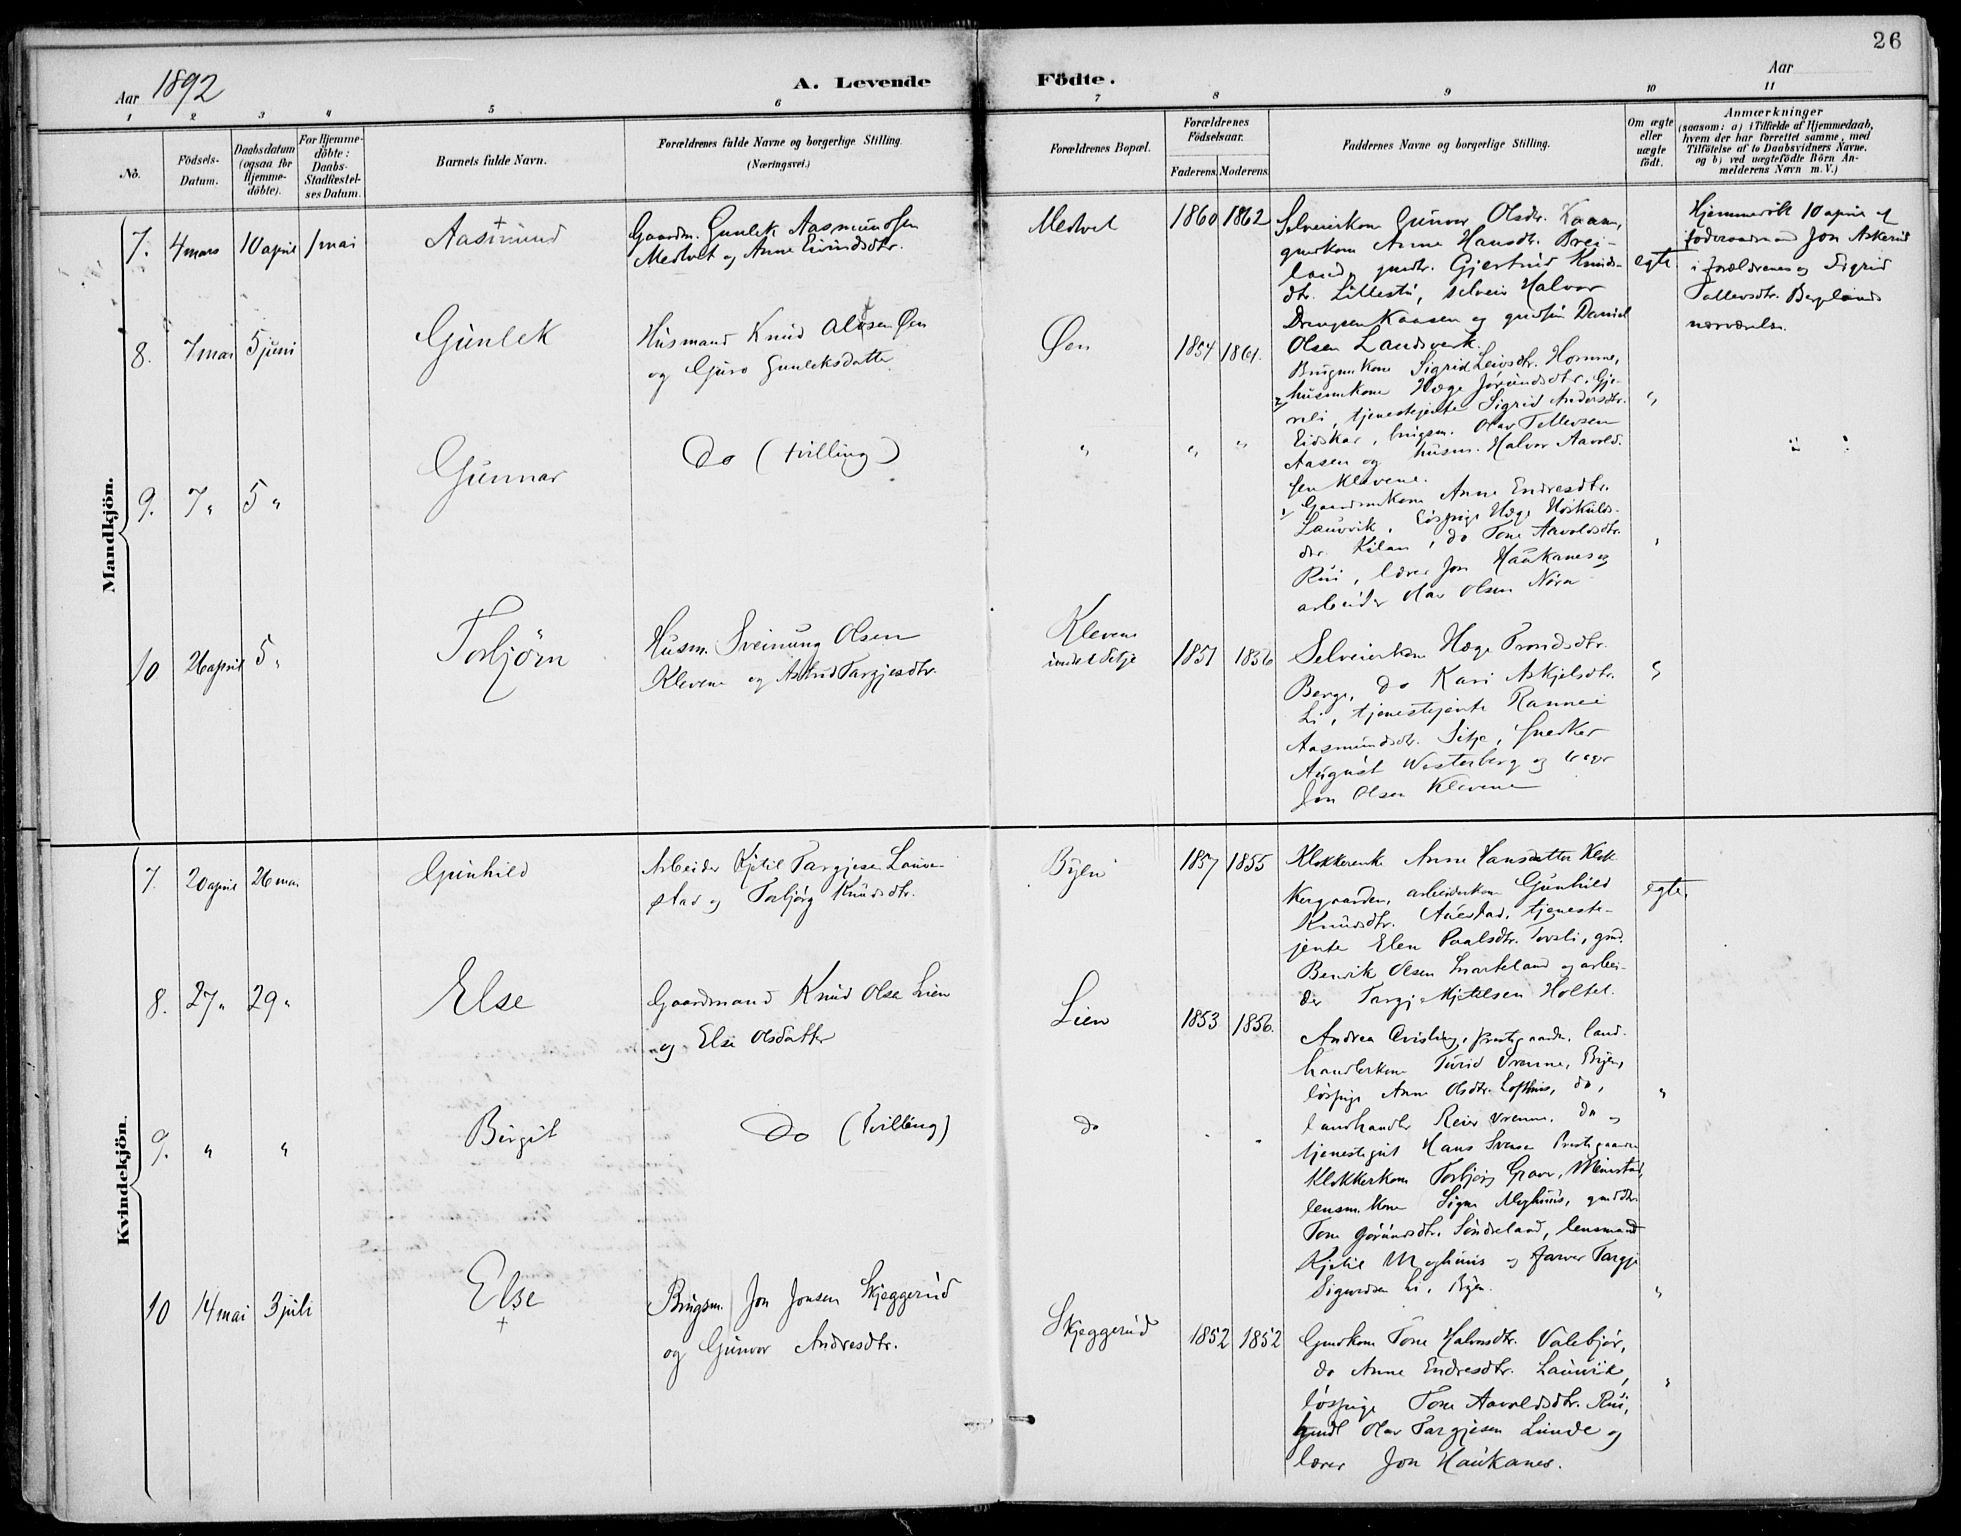 26
Aar 1892
A. Levende Födte.
Aar
1 2 3 4 5 6 7 8 9 10 11
No.
Födsels-Datum.
Daabsdatum (ogsaa for Hjemme-döbte).
For Hjemme-döbte: Daabs-Stadfæstel-ses Datum.
Barnets fulde Navn.
Forældrenes fulde Navne og borgerlige Stilling. (Næringsvei.)
Forældrenes Bopæl.
Forældrenes Födselsaar.
Faderens. Moderens.
Faddernes Navne og borgerlige Stilling.
Om ægte eller uægte födt.
Anmærkninger
(saasom: a) i Tilfælde af Hjemmedaab,
hvem der har forrettet samme, med
Tilföielse af to Daabsvidners Navne,
og b) ved uægtefödte Börn An-
melderens Navn m. V.)
Mandkjön.
7. 4 mars 10 april 1 mai
Aasmund
Gaardm. Gunlek Aasmundsen
Medvet og Anne Eivindsdtr.
Medvet
1860 1862
Selveierkone Gunvor Olsdr. Kaasa,
gmkone Anne Hansdr. Brei-
land, gmdtr. Gjertrud Knuds-
dtr. Lillestu, selveir Halvor
Drengsen Kaasen og gmdsøn Daniel
Olsen Landsverk.
egte
Hjemmevik 10 april af
föderaadsmand Jon Askerud
i forældrenes og Sigrid
Tollevsdtr. Bergland
nærværelse.
8. 7 mai 5 juni
Gunlek
Husmand Knud Olsen Øen
og Guro Gunleksdatter
Øen
1854 1861.
Brugmkone Sigrid Leivsdtr. Homme,
husmkone Hæge Jørundsdtr. Gje-
veli, tjenestejente Sigrid Andersdtr.
Eidskar, brugsm. Olav Tollevsen
Aasen og husm. Halvor Aavold-
sen Klevene.
"
9. 7 " 5 "
Gunnar
Do (tvilling)
" " "
Gaardmkone Anne Endresdtr.
Lauvvik, løspige Hæge Høskulds-
dtr. Kilen, do Tone Aavoldsdtr.
Rui, lærer Jon Haukanes og
arbeider Olav Olsen Nörn
"
10 26 april 5 "
Torbjørn
Husm. Sveinung Olsen
Klevene og Astrid Targjesdtr.
Klevene
under Sitje
1851 1856
Selveierkone Hæge Trondsdtr.
Berge, do Kari Askjelsdtr.
Li, tjenestejente Rannei
Aasmundsdtr. Sitje, snedker
August Westerberg og
Jon Olsen Klevene
"
Kvindekjön.
7. 20 april 26 mai
Gunhild
Arbeider Kjetil Targjesen Lauve-
stad og Torbjørg Knudsdtr.
Byen
1857 1855
Klokkerenke Anne Hansdatter Klok-
kergaarden, arbeiderkone Gunhild
Knudsdtr. Auestad, tjeneste-
jente Elen Paalsdtr. Tovsli, gmd.
Benvik Olsen Svarteland og arbei-
der Targje Kjetilsen Holtet.
egte
8. 27 " 29 "
Else
Gaardmand Knud Olsen Lien
og Else Olsdatter
Lien
1853 1856.
Andrea Qvisling, prestegaarden, land-
handlerkone Turid Vrenne, Byen,
løspige Anne Olsdtr. Lofthus, do,
landhandler Reier Vrenne, do og
tjenestegut Hans Svensen Prestegaarden
"
9. " "
Birgit
Do (Tvilling)
do
Klokkerkone Torbjørg Grave, Meinstad,
lensm. kone Signe Moghuus, gmddtr.
Tone Jørundsdtr. Søndreland, lensmand
Kjetil Moghuus og farver Targje
Sigurdsen Li, Byen.
"
10 14 mai 3 juli
Else
Brugsm. Jon Jonsen Skjeggerud
og Gunvor Andresdtr.
Skjeggerud
1852 1852
Gmdkone Tone Halvorsdtr. Valebjør,
do Anne Endresdtr. Lauvvik,
løspige Tone Aavoldsdtr. Rui,
gmd. Olav Targjesen Lunde og
lærer Jon Haukanes.
"